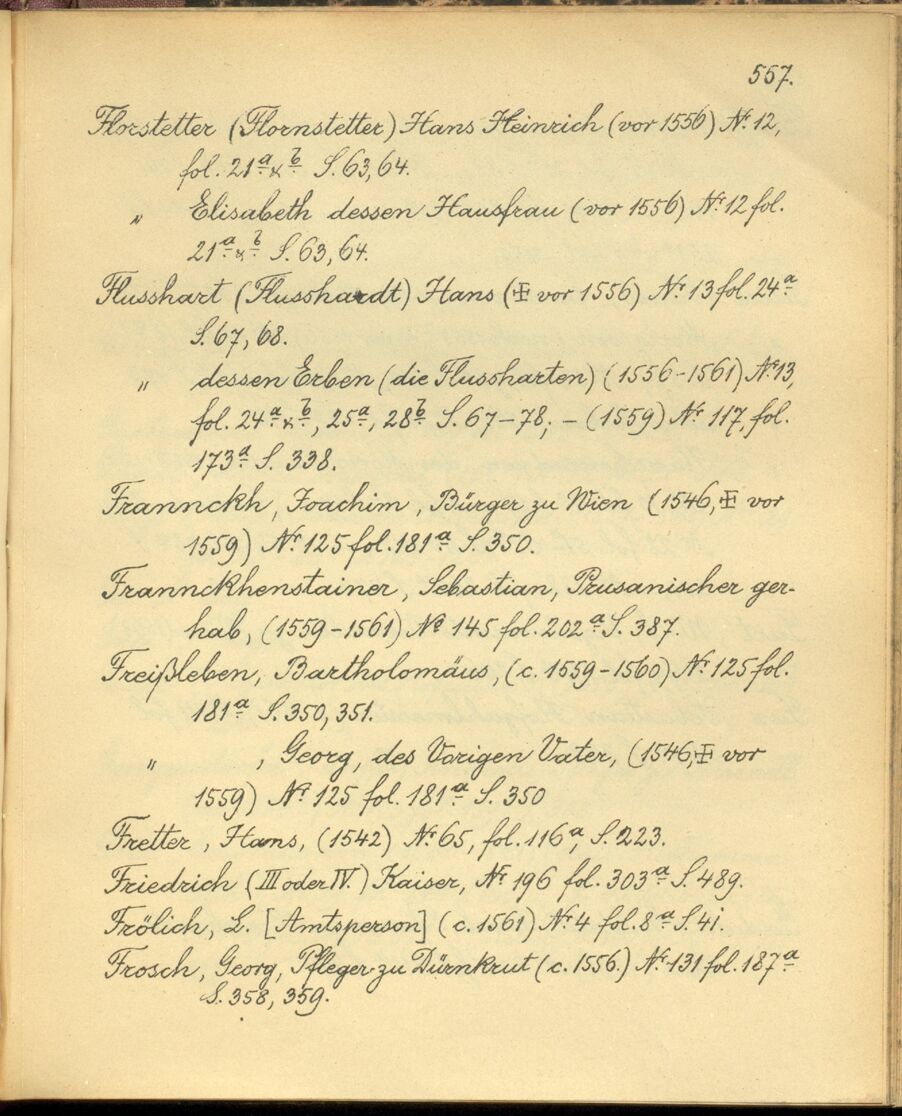 557.
Florstetter (Flornstetter) Hans Heinrich (vor 1556) Nr. 12,
fol. 21a & b S. 63, 64.
" Elisabeth dessen Hausfrau (vor 1556) Nr 12 fol.
21a & b S. 63, 64.
Flusshart (Flusshardt) Hans (‡ vor 1556) Nr. 13 fol. 24a
S. 67, 68.
" dessen Erben (die Flussharten) (1556-1561) Nr. 13,
fol. 24a & b, 25a, 28b S. 67-78; - (1559) Nr. 117, fol.
173a S. 338.
Frannckh, Joachim, Bürger zu Wien (1546, ‡ vor
1559) Nr. 125 fol. 181a S. 350.
Frannckhenstainer, Sebastian, Prusanischer ger-
hab, (1559-1561) No 145 fol. 202a S. 387.
Freißleben, Bartholomäus, (c. 1559-1560) Nr. 125 fol.
181a S. 350, 351.
", Georg, des Vorigen Vater, (1546, ‡ vor
1559) No 125 fol. 181a S. 350
Fretter, Hans, (1542) Nr. 65, fol. 116a, S. 223.
Friedrich (III oder IV.) Kaiser, Nr 196 fol. 303a S. 489.
Frölich, L. [Amtsperson] (c. 1561) Nr. 4 fol. 8a S. 41.
Frosch, Georg, Pfleger zu Dürnkrut (c. 1556.) Nr. 131 fol. 187a
S. 358, 359.